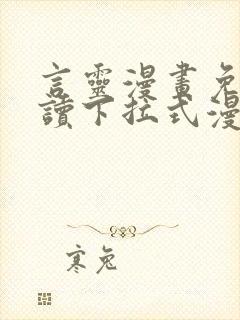 言靈漫畫免
讀下拉式漫
寒兔